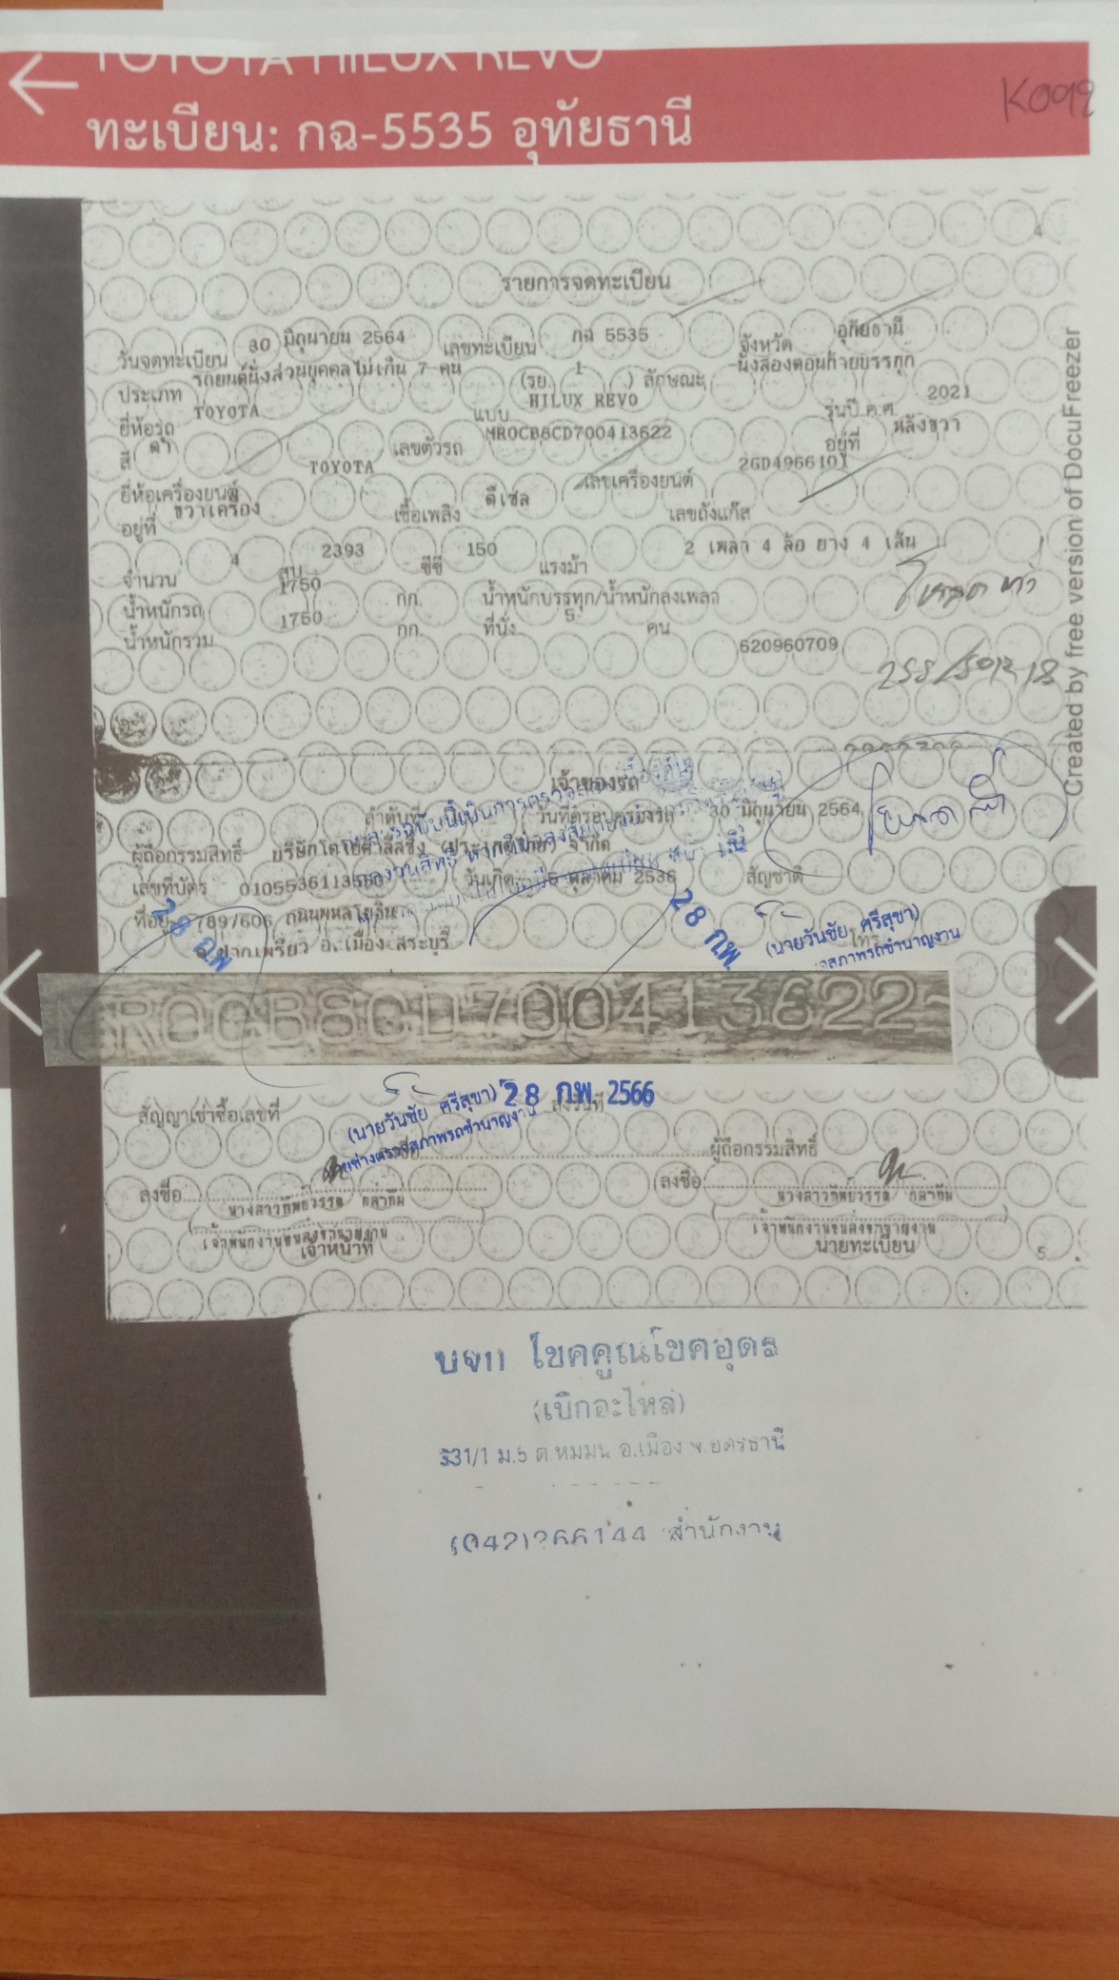 TOYOTA HILUX REVO
ทะเบียน: กฉ-5535 อุทัยธานี
K092
4
รายการจดทะเบียน
วันจดทะเบียน 30 มิถุนายน 2564 เลขทะเบียน กฉ 5535 จังหวัด อุทัยธานี
ประเภท รถยนต์นั่งส่วนบุคคลไม่เกิน 7 คน (รย. 1 ) ลักษณะ นั่งสองตอนท้ายบรรทุก
ยี่ห้อรถ TOYOTA แบบ HILUX REVO รุ่นปี ค.ศ. 2021
สี ดำ เลขตัวรถ MR0CB8CD700413622 อยู่ที่ หลังขวา
ยี่ห้อเครื่องยนต์ TOYOTA เลขเครื่องยนต์ 2GD4966101
อยู่ที่ ขวาเครื่อง เชื้อเพลิง ดีเซล เลขถังแก๊ส
จำนวน 4 สูบ 2393 ซีซี 150 แรงม้า 2 เพลา 4 ล้อ ยาง 4 เส้น
น้ำหนักรถ 1750 กก. น้ำหนักบรรทุก/น้ำหนักลงเพลา
น้ำหนักรวม 1750 กก. ที่นั่ง 5 คน
620960709
Created by free version of DocuFreezer
เจ้าของรถ
ลำดับที่ วันที่ครอบครองรถ 30 มิถุนายน 2564
ผู้ถือกรรมสิทธิ์ บริษัทโตโยต้าลีสซิ่ง (ประเทศไทย) จำกัด
เลขที่บัตร วันเกิด ตุลาคม 2536 สัญชาติ
ที่อยู่ 789/606 ถนนพหลโยธิน
ต.ปากเพรียว อ.เมือง สระบุรี
28 ก.พ.
28 ก.พ.
(นายวันชัย ศรีสุขา)
R0CB8CD700413622
สัญญาเช่าซื้อเลขที่ ลงวันที่
28 ก.พ. 2566
(นายวันชัย ศรีสุขา)
นายช่างตรวจสภาพรถชำนาญงาน
ผู้ถือกรรมสิทธิ์
ลงชื่อ (ลงชื่อ
เจ้าพนักงานขนส่งชำนาญงาน เจ้าพนักงานขนส่งชำนาญงาน
เจ้าหน้าที่ นายทะเบียน
5
บจก โชคคูณโชคอุดร
(เบิกอะไหล่)
331/1 ม.5 ต.หมูม่น อ.เมือง จ.อุดรธานี
0421266144 สำนักงาน